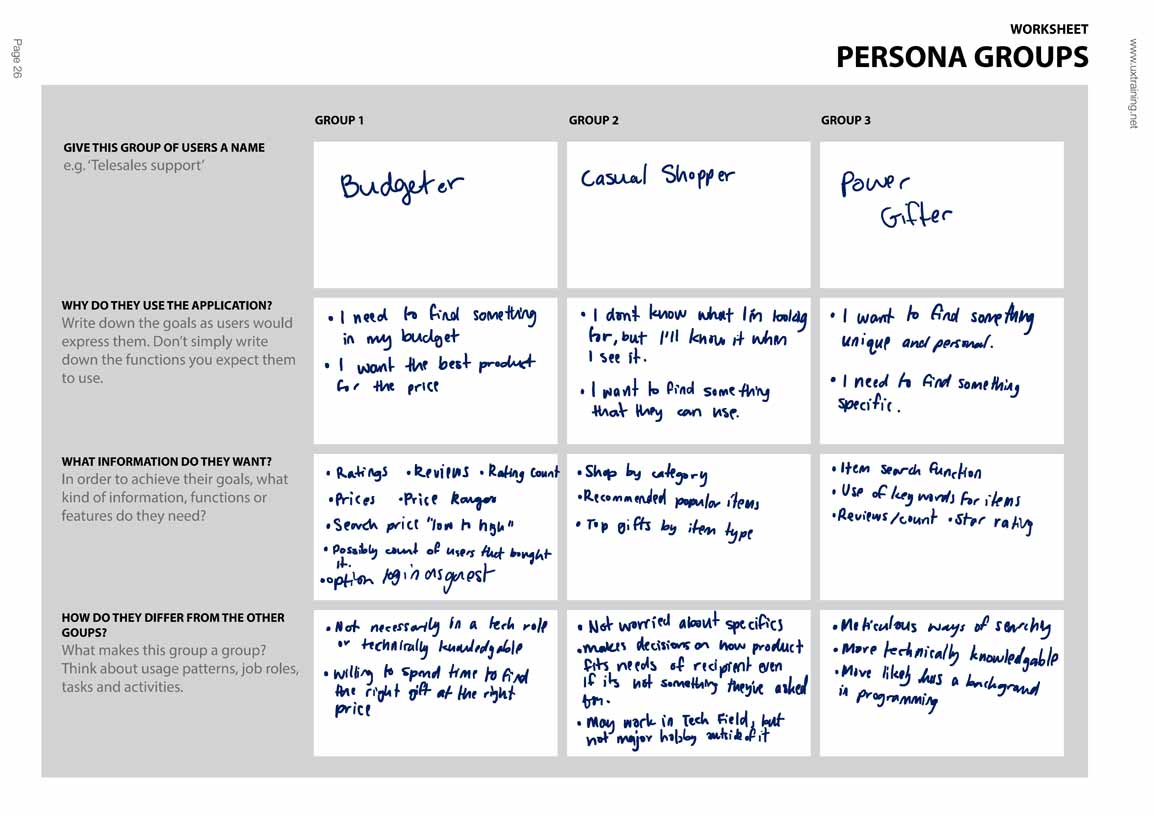 WORKSHEET
PERSONA GROUPS
Page 26
www.uxtraining.net
GROUP 1
GROUP 2
GROUP 3
GIVE THIS GROUP OF USERS A NAME
e.g. ‘Telesales support’
Budgeter
Casual Shopper
Power
Gifter
WHY DO THEY USE THE APPLICATION?
Write down the goals as users would
express them. Don’t simply write
down the functions you expect them
to use.
• I need to find something
in my budget
• I want the best product
for the price
• I don't know what I'm looking
for, but I'll know it when
I see it.
• I want to find something
that they can use.
• I want to find something
unique and personal.
• I need to find something
specific.
WHAT INFORMATION DO THEY WANT?
In order to achieve their goals, what
kind of information, functions or
features do they need?
• Ratings • Reviews • Rating Count
• Prices • Price Ranges
• Search price "low to high"
• Possibly count of users that bought
it.
• option login as guest
• Shop by category
• Recommended popular items
• Top gifts by item type
• Item search function
• Use of key words for items
• Reviews/count • Star rating
HOW DO THEY DIFFER FROM THE OTHER
GOUPS?
What makes this group a group?
Think about usage patterns, job roles,
tasks and activities.
• Not necessarily in a tech role
or technically knowledgable
• willing to spend time to find
the right gift at the right
price
• Not worried about specifics
• makes decisions on how product
fits needs of recipient even
if its not something they've asked
for.
• May work in Tech Field, but
not major hobby outside of it
• Meticulous ways of searching
• More technically knowledgable
• More likely has a background
in programming